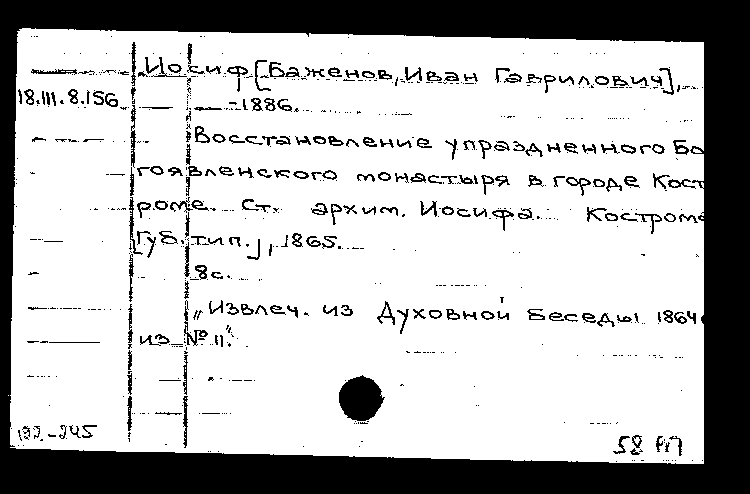 Иосиф [Баженов, Иван Гаврилович],
18.III.8.156
-1886.
Восстановление упраздненного Бо
гоявленского монастыря в городе Кост
роме. Ст. архим. Иосифа. Кострома
[Губ. тип.], 1865.
8с.
„Извлеч. из Духовной Беседы 1864
из № 11."
-245
58 РП